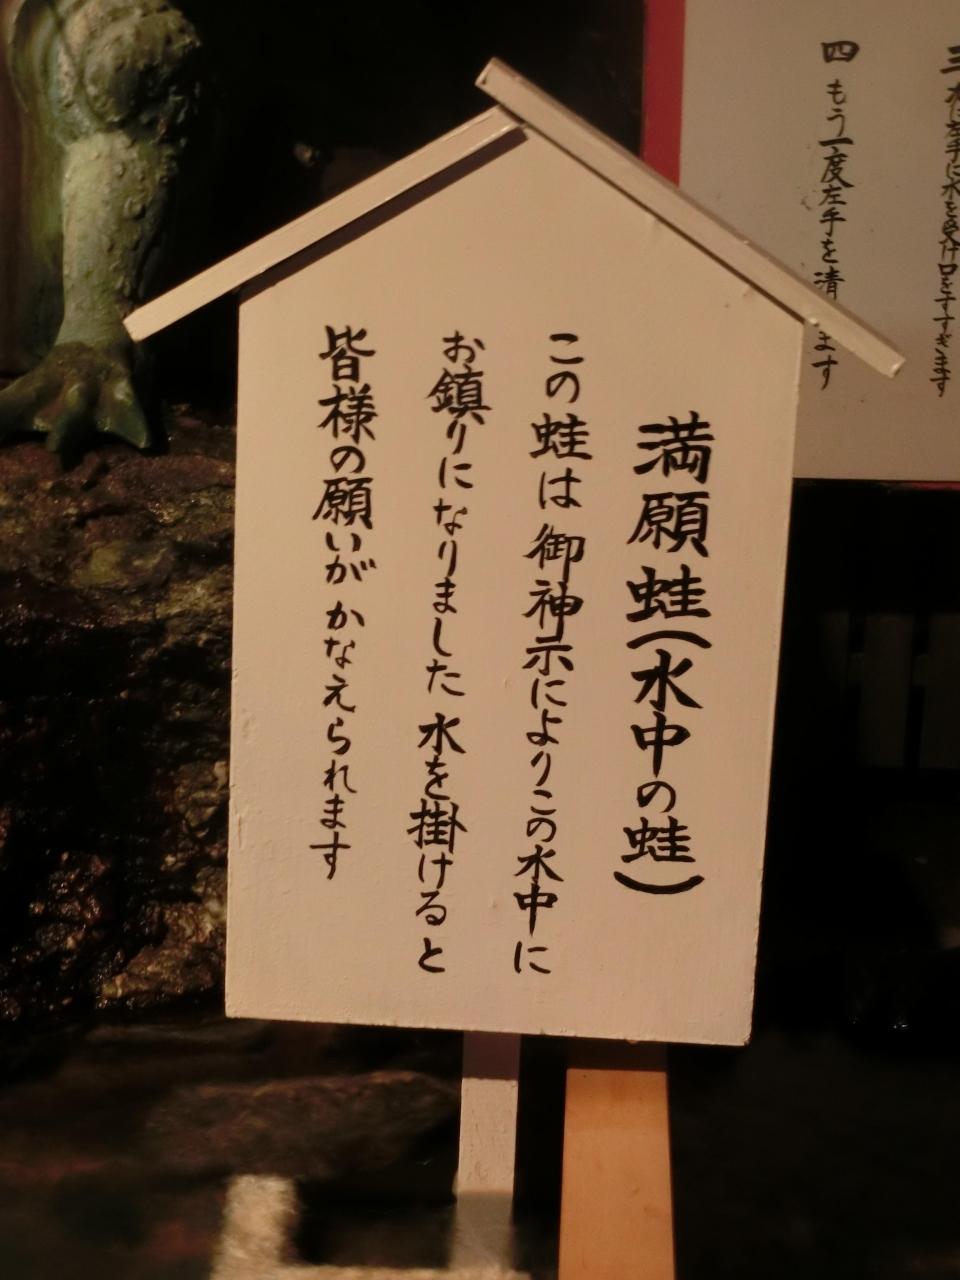 満願蛙(水中の蛙)
この蛙は御神示によりこの水中に
お鎮りになりました水を掛けると
皆様の願いがかなえられます
三 次に左手に水を受け口をすすぎます
四 もう一度左手を清 ます